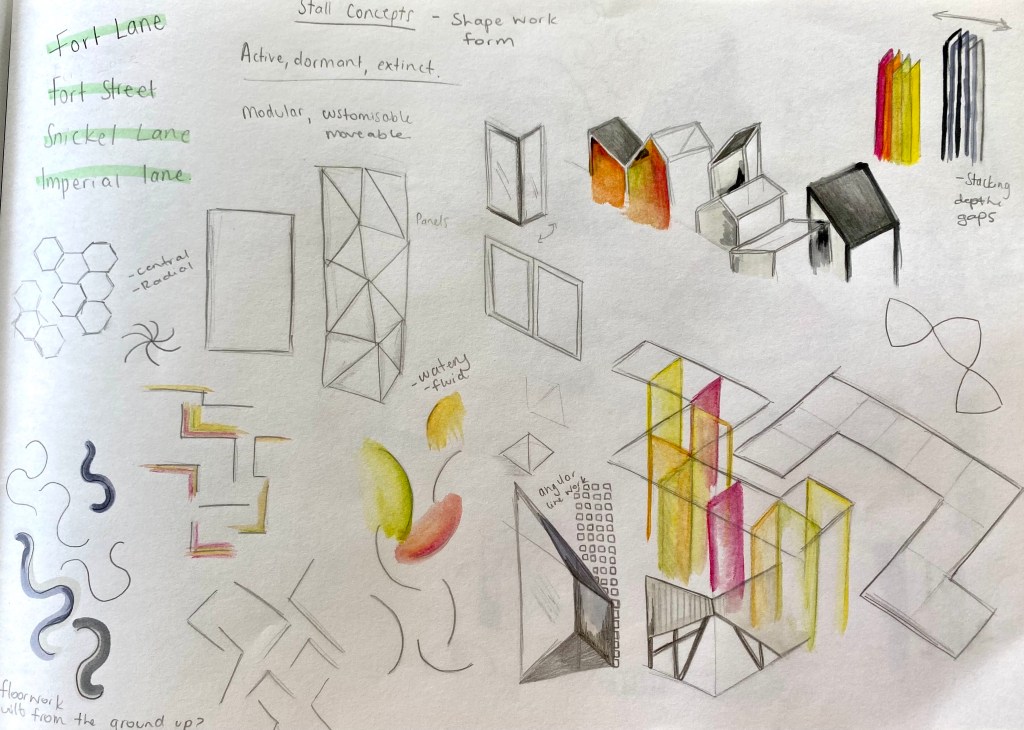 Fort Lane
Fort Street
Snickel Lane
Imperial lane
Stall Concepts - Shape work
form
Active, dormant, extinct.
Modular, customisable
moveable
Panels
- Stacking
depth
gaps
- Central
- Radial
- watery
- fluid
angular
line work
floorwork
from the ground up?